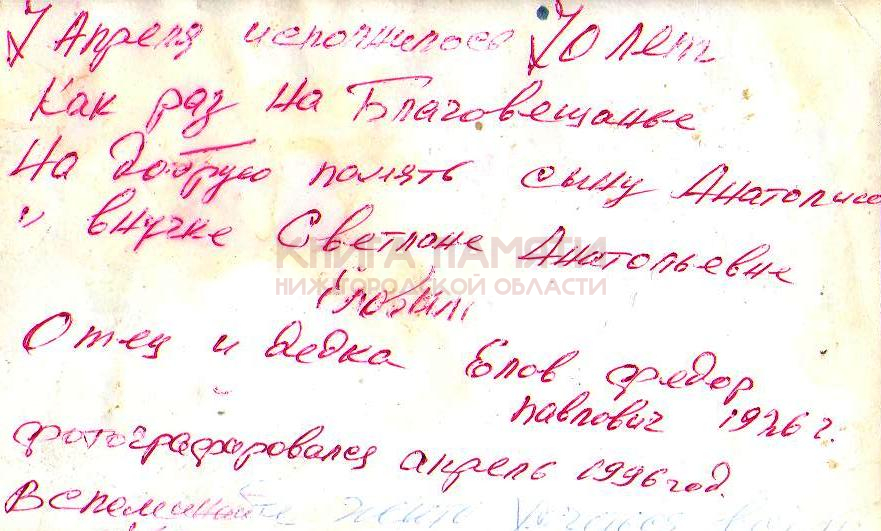 7 Апреля исполнилось 70 лет
Как раз на Благовещанье
На добрую память сыну Анатолию
и внучке Светлане Анатольевне
КНИГА ПАМЯТИ
НИЖЕГОРОДСКОЙ ОБЛАСТИ
Отец и дедка Елов Федор
Павлович 1926 г.
фотографировался апрель 1996 год.
Вспоминайте